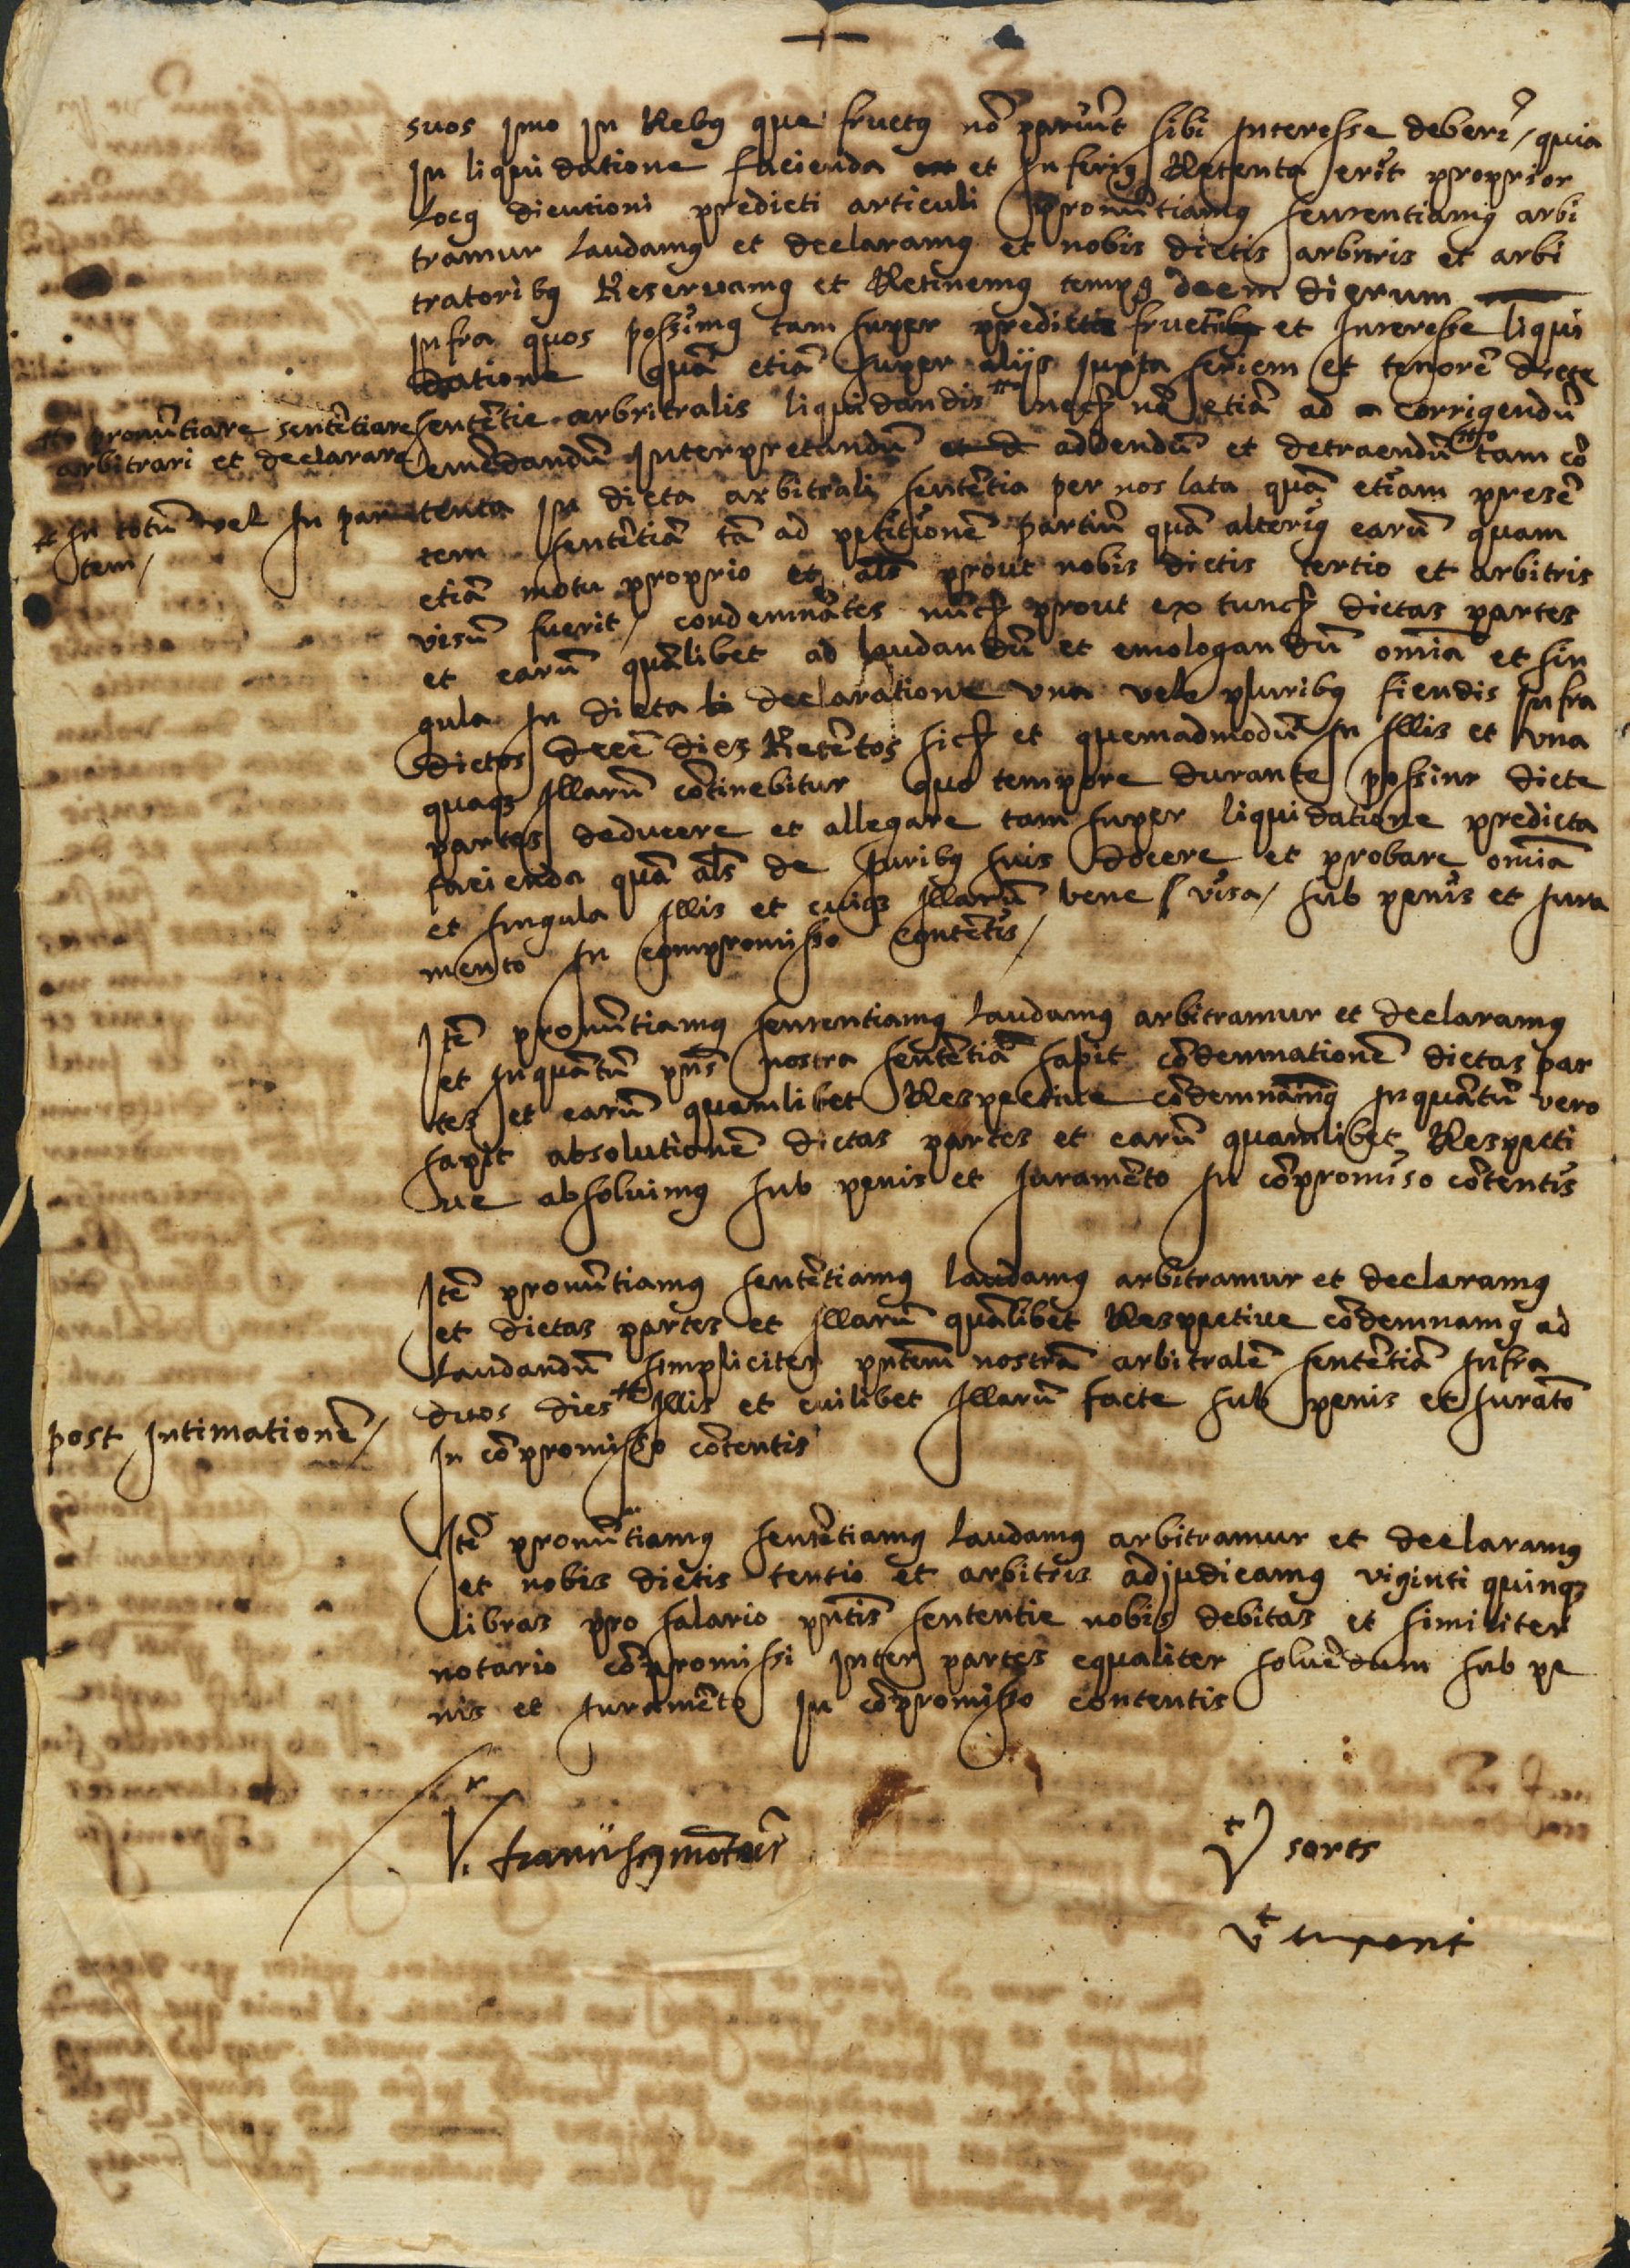 suos imo in Rebus que fructus nõ pariũt sibi interesse deberi / quia
in liquidatione facienda et inferius Retenta erit proprior
locus dicutioni predicti articuli pronũtiamus sentẽtiamus arbi
tramur laudamus et declaramus et nobis dictis arbitris et arbi
tratoribus Reservamus et Retinemus tempus decem dierum
infra quos possimus tam super predictis fructibus et interesse liqui
datione quã etiã super aliis iuxta seriem et tenorẽ dicte
sentẽtie arbitralis liquidandis nec nõ etiã ad corrigendũ
pronũtiare sentẽtiare
arbitrari et declarare
emẽdandũ interpretandũ addendũ et detraendũ tam cõ
in totũ vel in par
tem /
tenta in dicta arbitrali sentẽtia per nos lata quã etiam presẽ
tem sentẽtiã tã ad petitionẽ partiũ quã alterius earũ quam
etiã motu proprio et als prout nobis dictis tertio et arbitris
visũ fuerit / condemnãtes nũc prout ex tunc dictas partes
et earũ quãlibet ad laudandũ et emologandũ omĩa et sin
gula in dicta declaratione una vel pluribus fiendis infra
dictos decẽ dies Retẽtos sic et quemadmodũ in illis et una
quaq3 illarũ cõtinebitur quo tempore durante possint dicte
partes deducere et allegare tam super liquidatione predicta
facienda quã als de iuribus suis docere et probare omĩa
et singula illis et cuiq3 illarũ bene visa / sub penis et iura
mento in compromisso contẽtis /
Itẽ pronũtiamus sententiamus laudamus arbitramur et declaramus
et inquãtũ pñs nostra sentẽtiã sapit cõdemnationẽ dictas par
tes et earũ quamlibet Respective cõdemnamus inquãtũ vero
sapit absolutionẽ dictas partes et earũ quamlibet Respecti
ve absolvimus sub penis et iuramẽto in cõpromiso cõtentis
Itẽ pronũtiamus sentẽtiamus laudamus arbitramur et declaramus
et dictas partes et illarũ quãlibet Respective cõdemnamus ad
laudandũ simpliciter pñtem nostrã arbitralẽ sentẽtiã infra
duos dies illis et cuilibet illarũ facte sub penis et iurãto
post intimationẽ /
in cõpromisso cõtentis
Itẽ pronũtiamus sentẽtiamus laudamus arbitramur et declaramus
et nobis dictis tertio et arbitris adjudicamus viginti quinq3
libras pro salario pñtis sententie nobis debitas et similiter
notario cõpromissi inter partes equaliter solvẽdum sub pe
nis et iuramẽto in cõpromisso contentis
Vt sorts